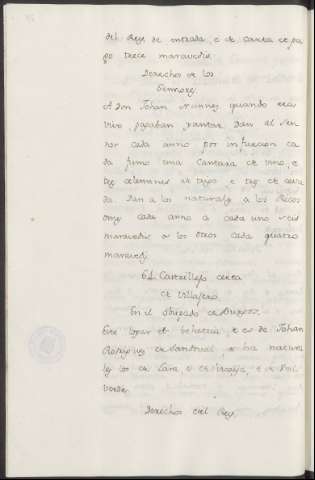 del Rey de entrada, e de carta de pa
go trece maravedis.
Derechos de los
Sennores
A Don Johan Nunnez, quando era
vivo, pagaban yantar, dan al Sen
nor cada anno por infurcion ca
da fumo una cantara de vino, e
tres celemines de trigo, e tres de ceva
da. Dan a los naturales a los Ricos
omes cada anno a cada uno seis
maravedis a los otros cada quatro
maravedis
61 Castrillejo cerca
de Villafera.
En el Obispado de Burgos.
Este logar es behetria, e es de Johan
Rodriguez de Sandoval, e ha natura
les los de Lara, e de Vizcaya, e de Val
verde.
Derechos del Rey.